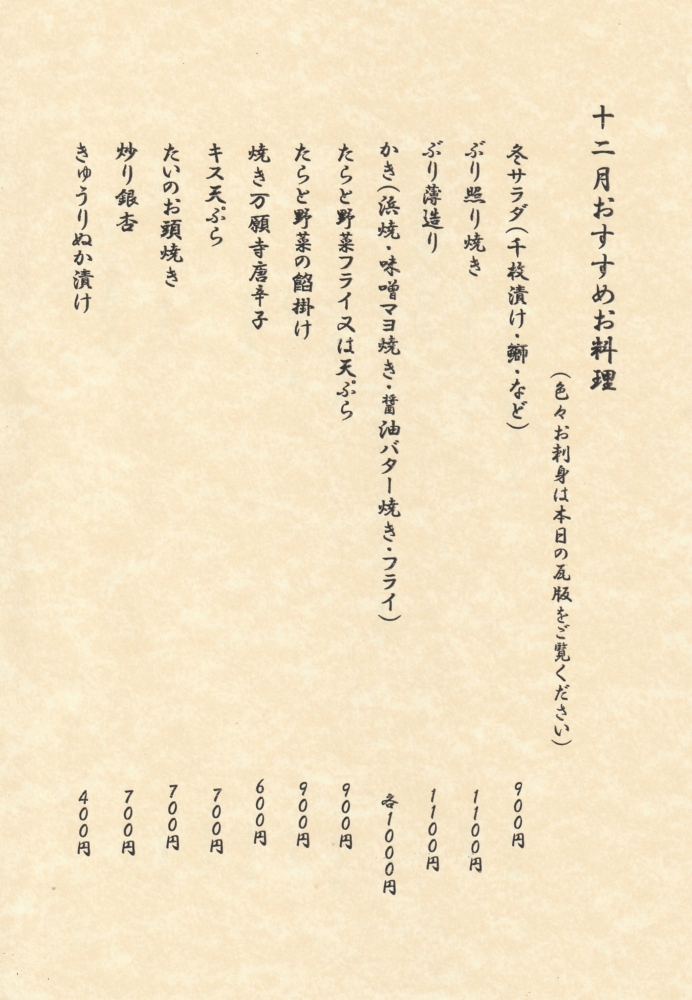 十二月おすすめお料理
(色々お刺身は本日の瓦版をご覧ください)
冬サラダ(千枚漬け・鰤・など) 900円
ぶり照り焼き 1100円
ぶり薄造り 1100円
かき(浜焼・味噌マヨ焼き・醤油バター焼き・フライ) 各1000円
たらと野菜フライ又は天ぷら 900円
たらと野菜の餡掛け 900円
焼き万願寺唐辛子 600円
キス天ぷら 700円
たいのお頭焼き 700円
炒り銀杏 700円
きゅうりぬか漬け 400円